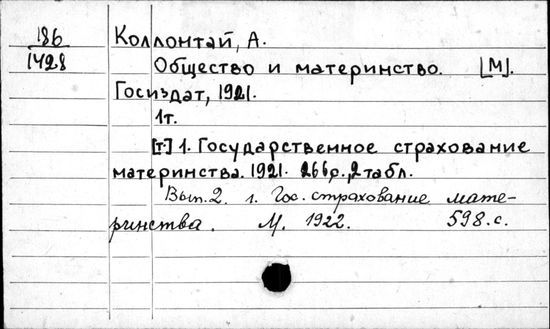 186
1428
Коллонтай, А.
Общество и материнство. [М].
Госиздат, 1921.
1т.
[т.] 1. Государственное страхование
материнства. 1921. 266с., 2 табл.
Вып. 2. 1. Гос. страхование мате-
ринства. М. 1922. 598.с.